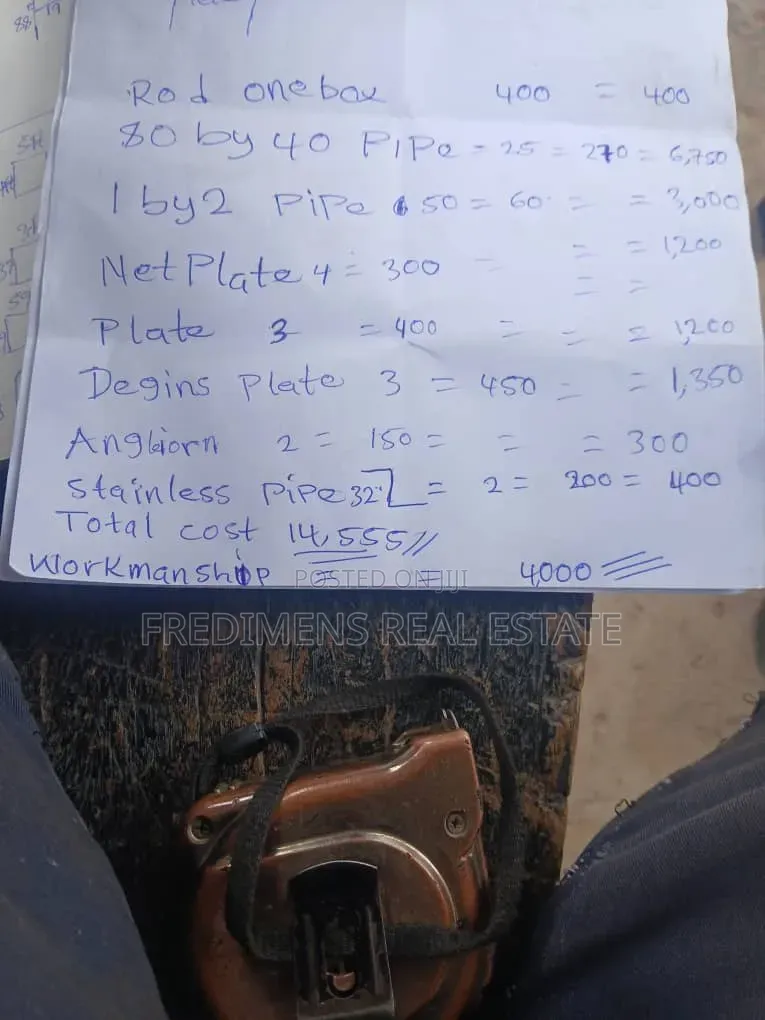 Rod one box 400 = 400
80 by 40 PIPe = 25 = 270 = 6,750
1 by 2 PiPe 50 = 60 = = 3,000
Net Plate 4 = 300 = = = 1,200
= =
Plate 3 = 400 = = = 1,200
Degins Plate 3 = 450 = = 1,350
Angliorn 2 = 150 = = = 300
Stainless pipe 32" = 2 = 200 = 400
Total cost 14,555//
Workmanship = = 4,000
POSTED ON JIJI
FREDIMENS REAL ESTATE